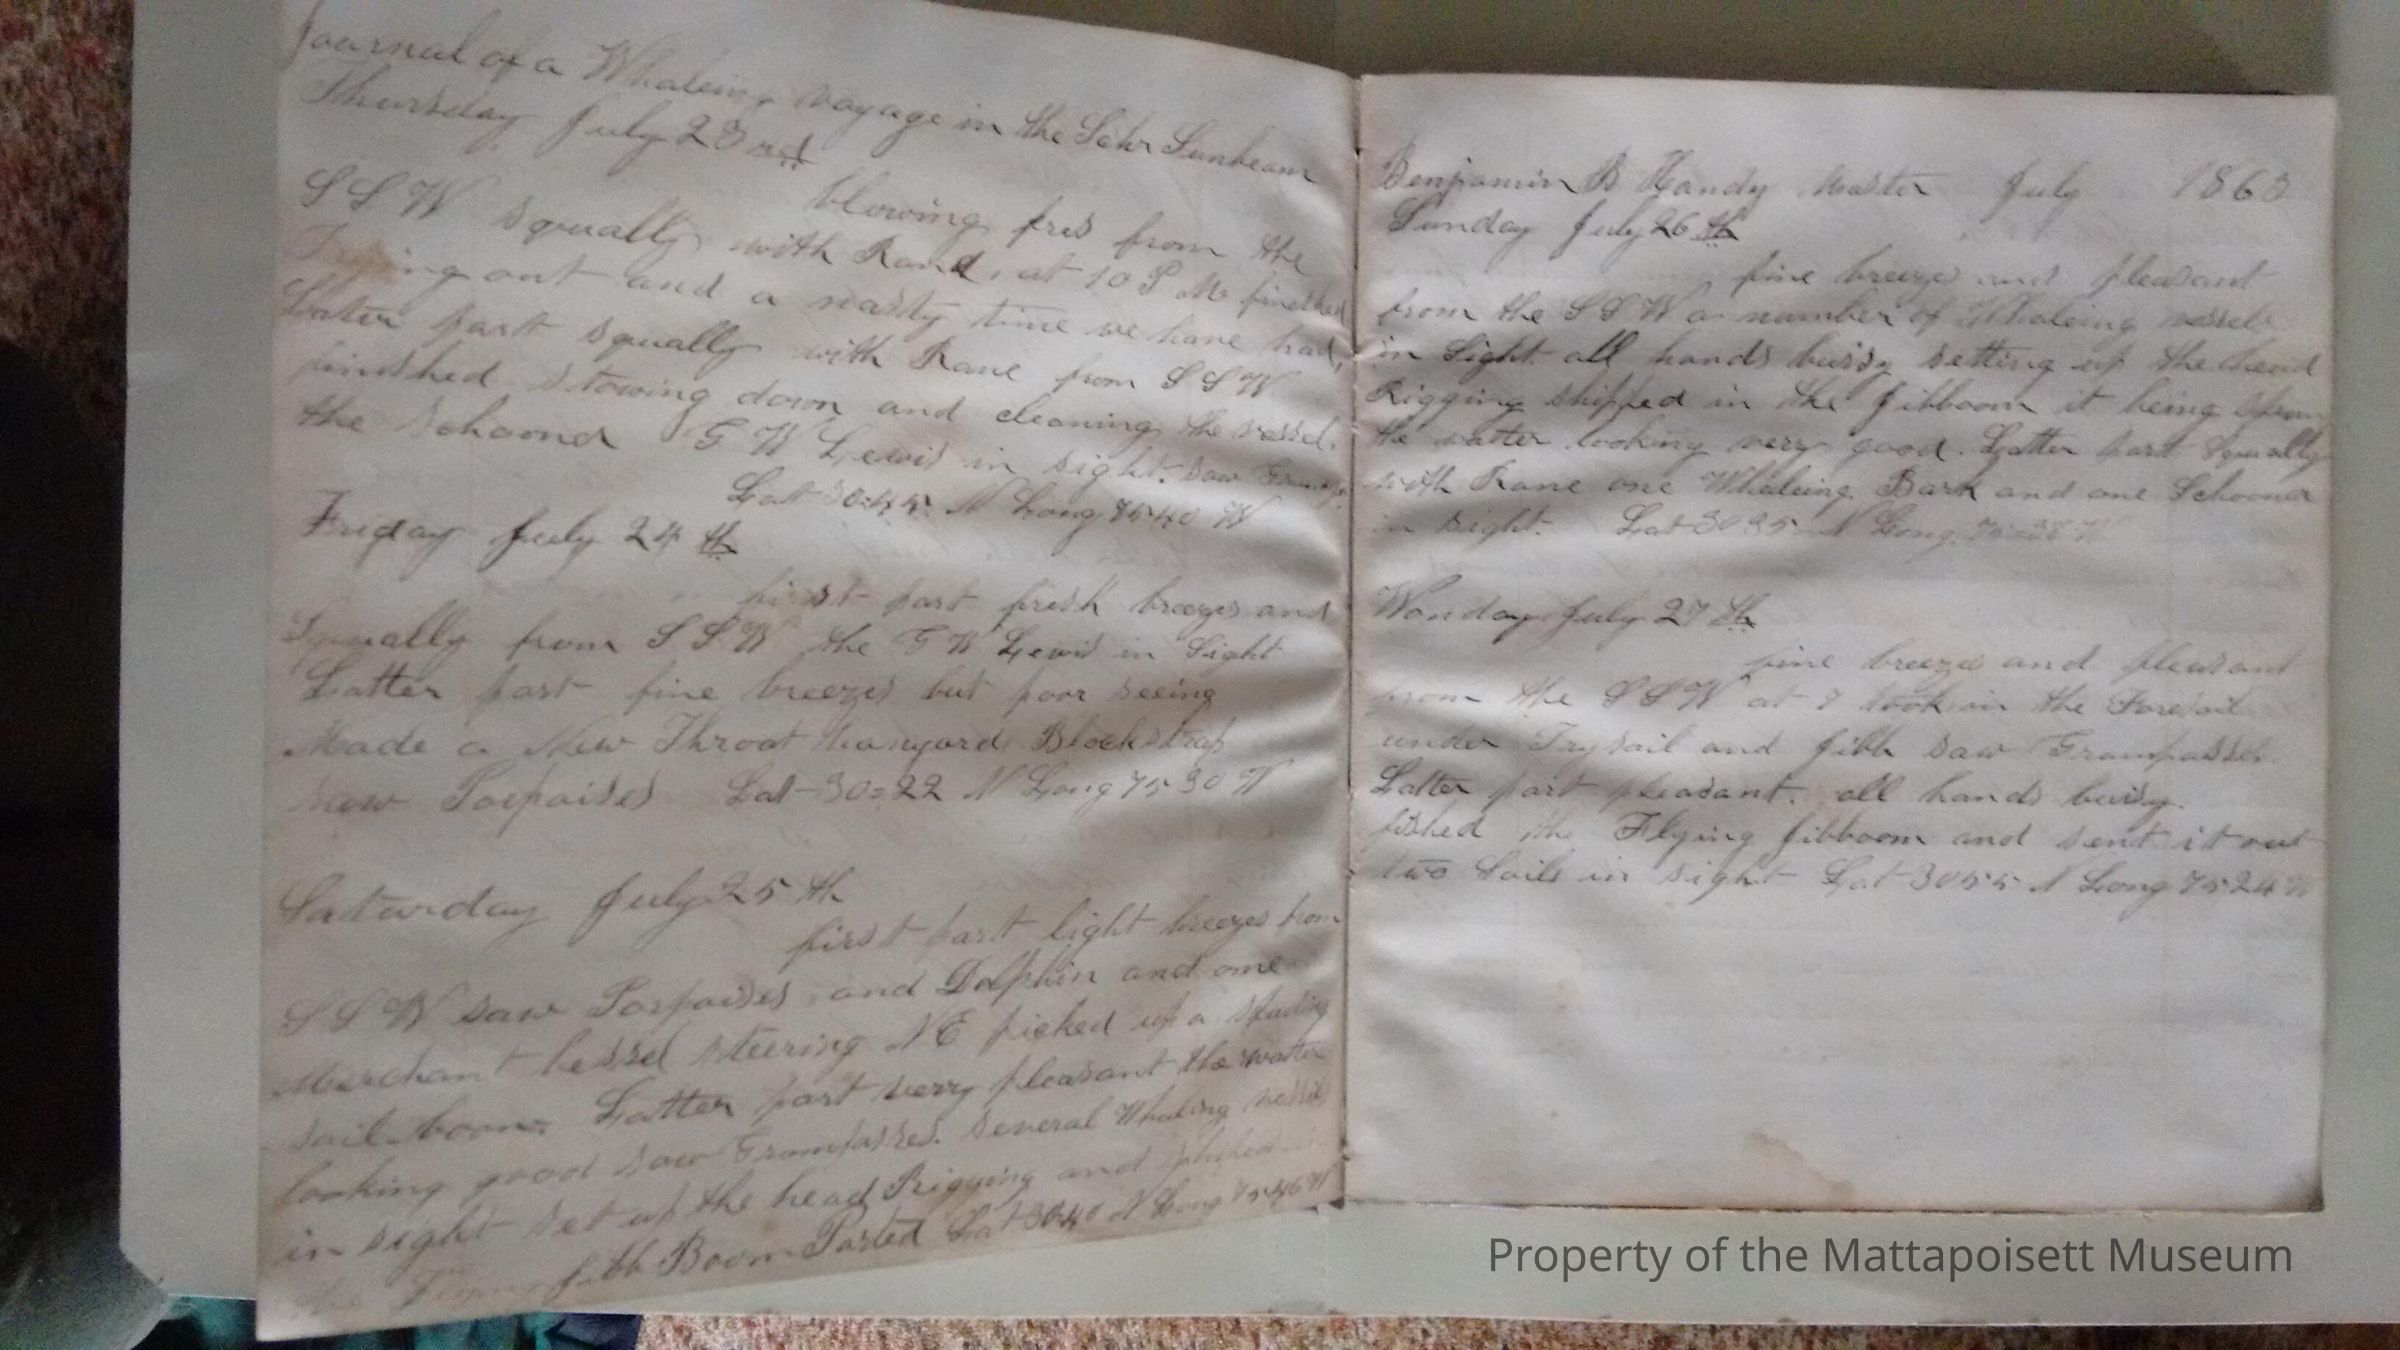 Journal of a Whaleing voyage in the Schr Sunbeam
Thursday July 23rd
blowing fres from the
S S W squally with Rane, at 10 P M finished
Trying out and a nasty time we have had,
Latter part squally with Rane from S S W
finished stowing down and cleaning the vessel.
the schooner G W Lewis in sight. saw
Lat 30=45 N Long 75 40 W
Friday July 24th
first part fresh breezes and
Squally from S S W the G W Lewis in Sight
Latter part fine breezes but poor seeing
Made a New Throat Blockstrap
saw Porpoises Lat 30=22 N Long 75 30 W
Saturday July 25th
first part light breezes from
S S W saw Porpoises and Dolphin and one
Merchant vessel steering NE picked up a studing
sail boom. Latter part very pleasant the watter
looking good saw Grampasses. several Whaling vessels
in sight set up the head Rigging and
the jibb Boom Parted Lat 30 40 N Long 75 46 W
Benjamin B Handy Master July 1863
Sunday July 26th
fine breeze and pleasant
from the S S W a number of Whaleing vessels
in Sight all hands buisy setting up the head
Rigging shipped in the jibboom it being
the watter looking very good. Latter part Squally
with Rane one Whaleing Bark and one Schooner
in sight. Lat 30 25 N Long W
Monday July 27th
fine breeze and pleasant
from the S S W at 7 took in the Foresail
under Trysail and jibb saw Grampasses
Latter part pleasant. all hands buisy.
fished the Flying jibboom and sent it out
two Sails in sight Lat 30 55 N Long 75 24 W
Property of the Mattapoisett Museum